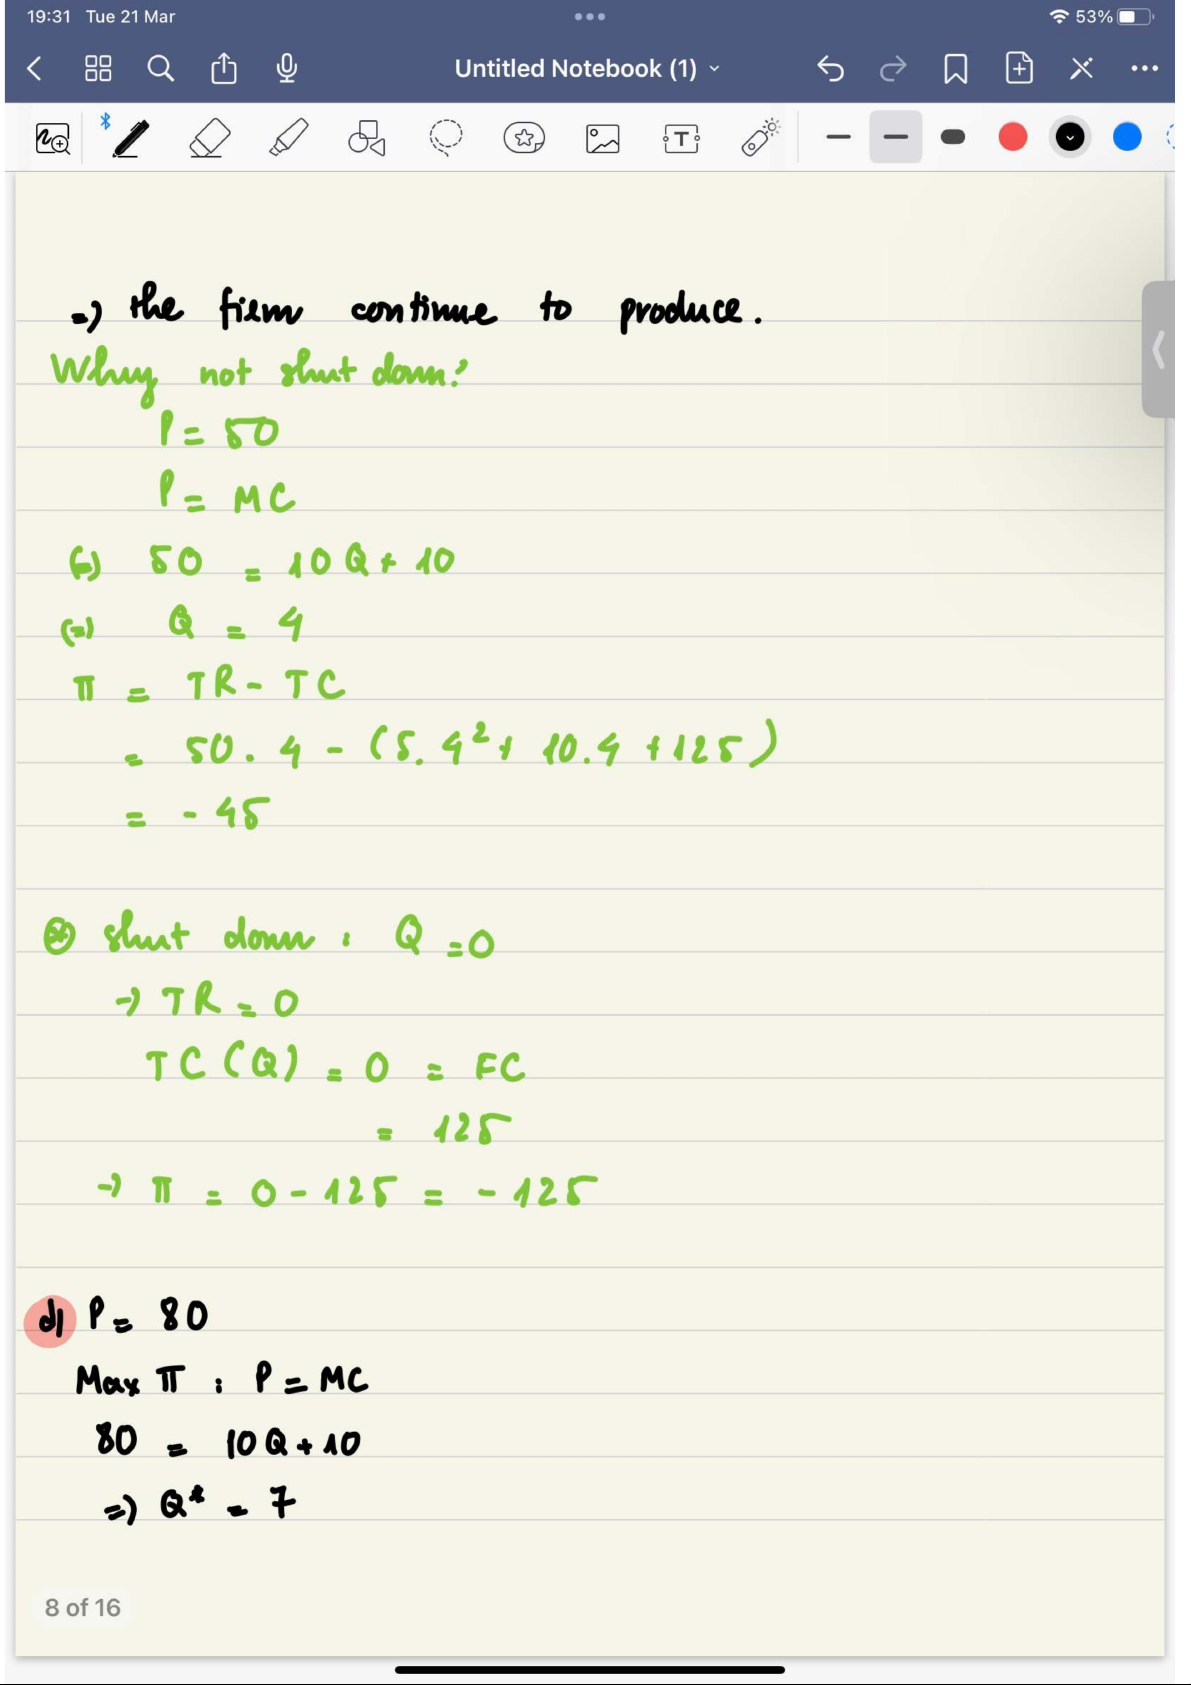 19:31 Tue 21 Mar
53%
Untitled Notebook (1)
T
=) the firm continue to produce.
Whuy not shut down?
P = 50
P = MC
(=) 50 = 10Q + 10
(=) Q = 4
π = TR - TC
= 50. 4 - (5. 4² + 10.4 + 125)
= - 45
⊛ shut down : Q = 0
-) TR = 0
TC (Q) = 0 = FC
= 125
-) π = 0 - 125 = - 125
d) P = 80
Max π : P = MC
80 = 10Q + 10
=) Q* = 7
8 of 16